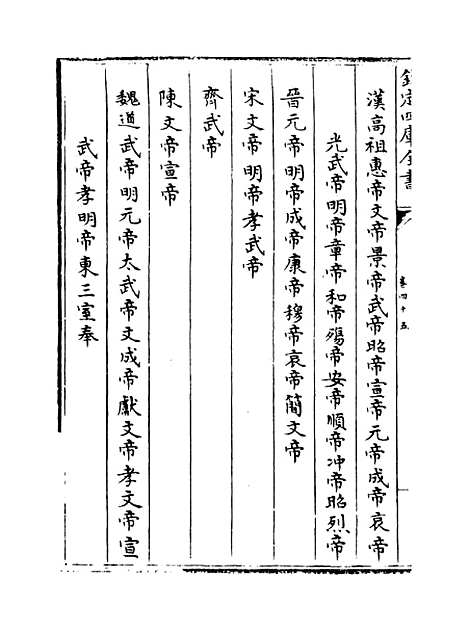 欽定四庫全書
卷四十五
漢高祖惠帝文帝景帝武帝昭帝宣帝元帝成帝哀帝
光武帝明帝章帝和帝殤帝安帝順帝冲帝昭烈帝
晉元帝明帝成帝康帝穆帝哀帝簡文帝
宋文帝明帝孝武帝
齊武帝
陳文帝宣帝
魏道武帝明元帝太武帝文成帝獻文帝孝文帝宣
武帝孝明帝東三室奉